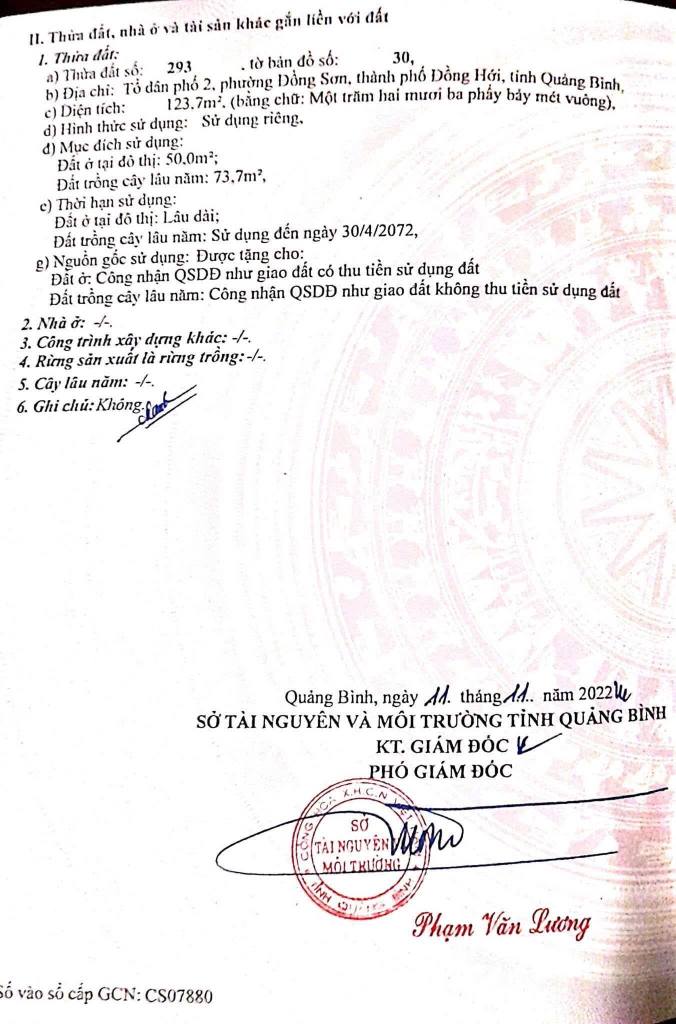 II. Thửa đất, nhà ở và tài sản khác gắn liền với đất
1. Thửa đất:
a) Thửa đất số: 293 . tờ bản đồ số: 30,
b) Địa chỉ: Tổ dân phố 2, phường Đồng Sơn, thành phố Đồng Hới, tỉnh Quảng Bình,
c) Diện tích: 123,7m², (bằng chữ: Một trăm hai mươi ba phẩy bảy mét vuông),
d) Hình thức sử dụng: Sử dụng riêng,
đ) Mục đích sử dụng:
Đất ở tại đô thị: 50,0m²;
Đất trồng cây lâu năm: 73,7m²,
e) Thời hạn sử dụng:
Đất ở tại đô thị: Lâu dài;
Đất trồng cây lâu năm: Sử dụng đến ngày 30/4/2072,
g) Nguồn gốc sử dụng: Được tặng cho:
Đất ở: Công nhận QSDĐ như giao đất có thu tiền sử dụng đất
Đất trồng cây lâu năm: Công nhận QSDĐ như giao đất không thu tiền sử dụng đất
2. Nhà ở: -/-.
3. Công trình xây dựng khác: -/-.
4. Rừng sản xuất là rừng trồng: -/-.
5. Cây lâu năm: -/-.
6. Ghi chú: Không.
Quảng Bình, ngày 11. tháng 11.. năm 2022
SỞ TÀI NGUYÊN VÀ MÔI TRƯỜNG TỈNH QUẢNG BÌNH
KT. GIÁM ĐỐC
PHÓ GIÁM ĐỐC
CỘNG HÒA X.H.C.N VIỆT NAM
SỞ
TÀI NGUYÊN
MÔI TRƯỜNG
TỈNH QUẢNG BÌNH
Phạm Văn Lương
Số vào sổ cấp GCN: CS07880